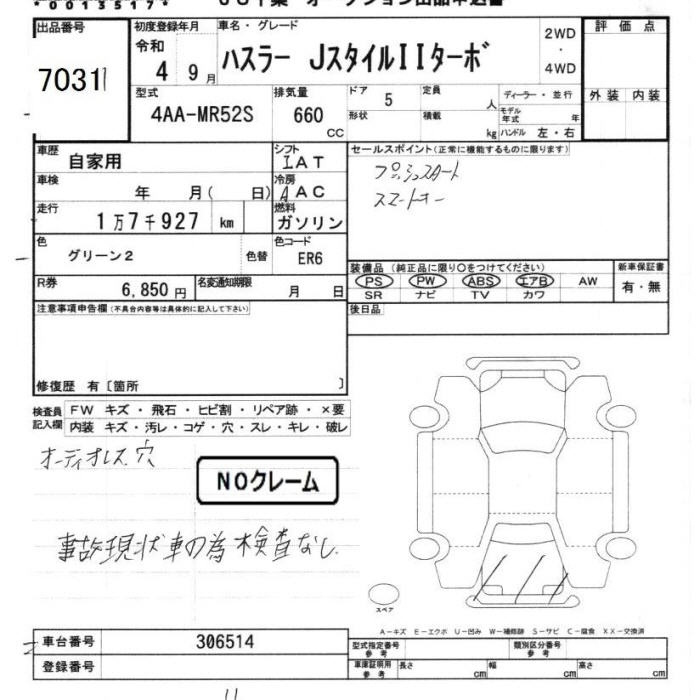 *0013517*
出品番号
70311
初度登録年月
令和
4 9月
車名・グレード
ハスラー JスタイルIIターボ
2WD
・
4WD
評価点
外装 内装
型式
4AA-MR52S
排気量
660
CC
ドア
5
形状
定員
人
積載
kg
ディーラー・並行
モデル年式 年
ハンドル 左・右
車歴
自家用
シフト
IAT
セールスポイント(正常に機能するものに限ります)
プッシュスタート
スマートキー
車検
年 月( 日)
冷房
AAC
走行
1万7千927 km
燃料
ガソリン
色
グリーン2
色替
色コード
ER6
装備品(純正品に限り○をつけてください)
PS PW ABS エアB AW
SR ナビ TV カワ
新車保証書
有・無
R券
6,850円
名変通知期限
月 日
後日品
注意事項申告欄(不具合内容等は具体的に記入して下さい)
修復歴 有〔箇所 〕
検査員記入欄
FW キズ・飛石・ヒビ割・リペア跡・×要
内装 キズ・汚レ・コゲ・穴・スレ・キレ・破レ
オーディオレス 穴
NOクレーム
事故現状車の為検査なし
スペア
A-キズ E-エクボ U-凹み W-補修跡 S-サビ C-腐食 XX-交換済
車台番号
306514
登録番号
型式指定番号
参考
類別区分番号
参考
車庫証明用
参考
長さ cm
幅 cm
高さ cm